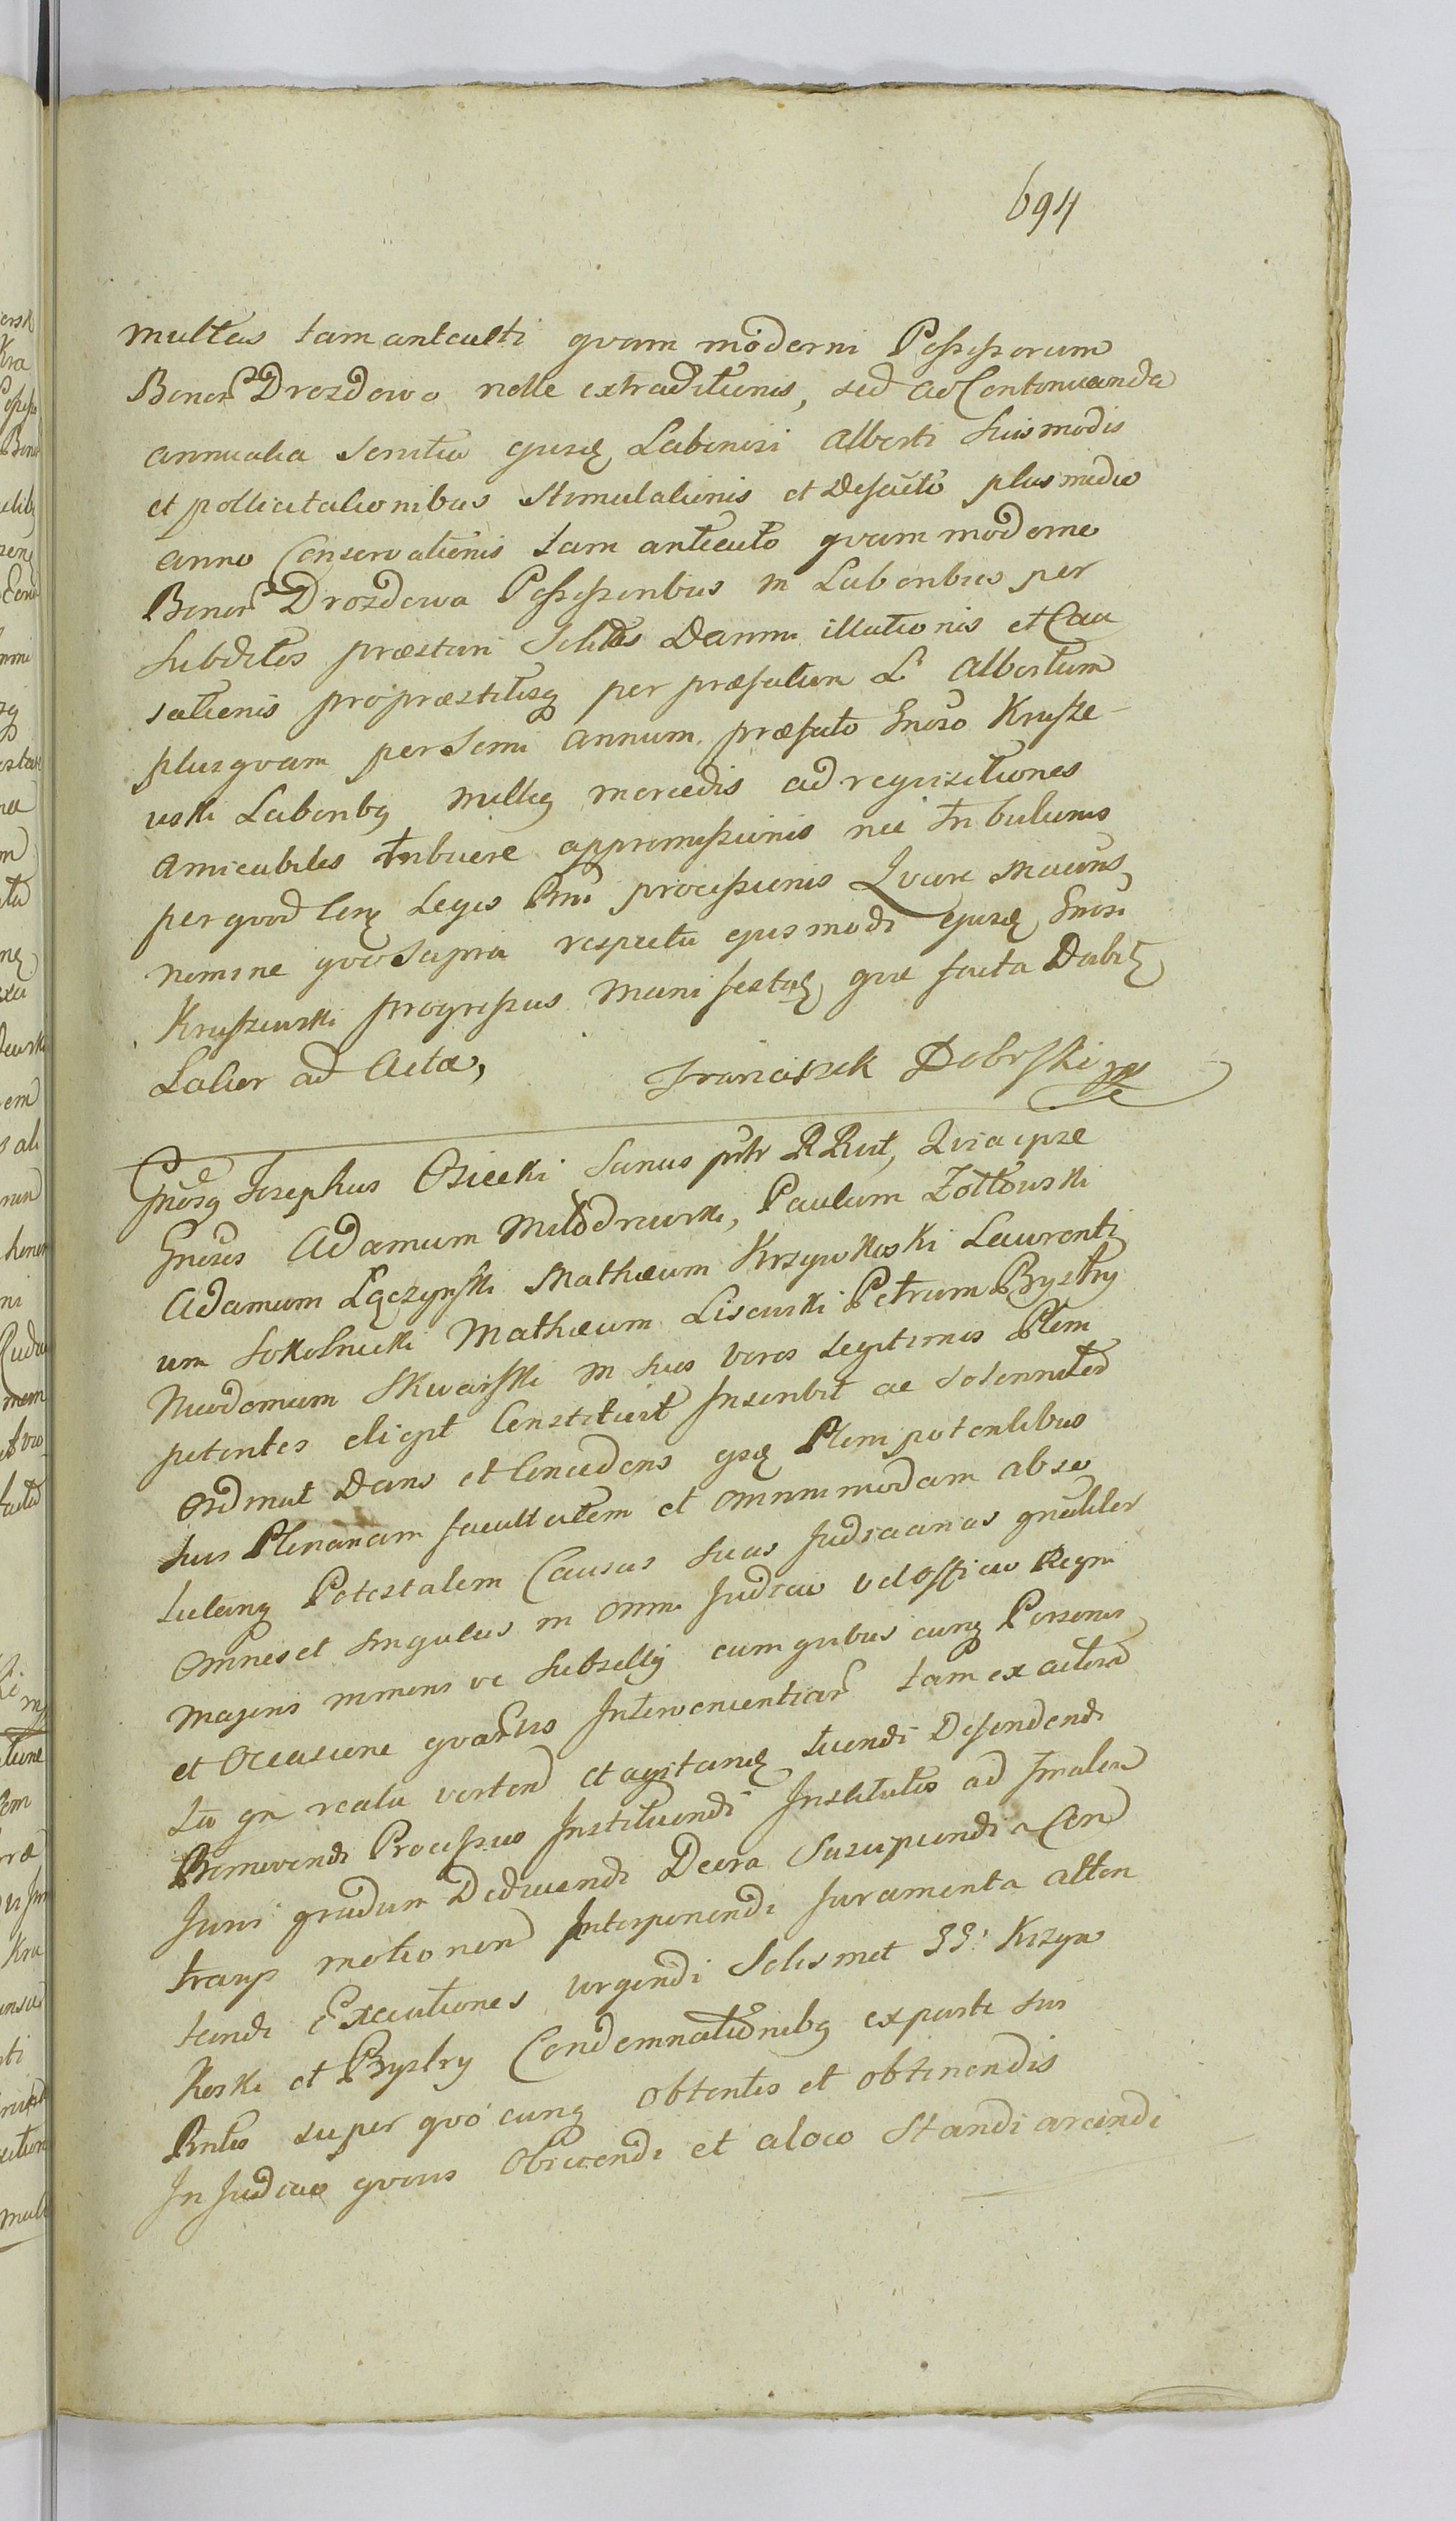 694
multas tam anteacti qvam moderni Possessorum
Bonor Drozdowo nolle extraditionis, sed ad Continuanda
annualia servitia ejusd Laboriosi Alberti suis modis
et pollicitationibus stimulationis et Defacto plus medio
anno Conservationis tam anteacto qvam moderno
Bonor Drozdowa Possessoribus in Laboribus per
subditos præstari solitos Damni illationis et Cau
sationis pro præstitisq per præfatum L. Albertum
plusqvam per semi annum præfato Gnoso Krusze-
wski Laboribq nullius mercedis ad reqvisitiones
amicabiles tribuere appromissionis nec tribulums
per qvod Cens Legis Rni processionis Qvare Maiows
nomine qvo supra respectu ejusmodi ejusd Gnosi
Kruszewski progressus Manifestat que facta Dabit
Latior ad Acta, Franciszek Dobrski mp
Gnosq Josephus Osiecki Sanus pntr RRscit, Qvia ipse
Gnosos Adamum Młodzrewski, Paulum Zołtowski
Adamum Łączyński Mathæum Krzywkoski Laurenti
um Sokolnicki Mathæum Lisewski Petrum Bystry
Nicodemum Skwarski in suos veros Legitimos Pleni
potentes eligit Constituit Inscribit ac Solenniter
Ordinat Dans et Concedens ijsd Plenipotentibus
suis Plenariam facultatem et omnimodam abso
lutamq Potestatem Causas suas Judiciarias gnaliter
Omnes et singulas in Omni Judicio vel Officio Regni
Majoris minoris ve subsellij cum qvibus cunq Personis
et Occasione qvarvis Intervenientiar tam ex actora
tu qn reatu verten et agitand tuendi Defendendi
Promovendi Processus Instituendi Institutos ad finalem
Juris gradum Deducendi Decra Suscipiendi Con
trarijs motionem Interponendi Juramenta atten
tandi Executiones urgendi Solismet GG: Krzyw
koski et Bystry Condemnationibq ex parte sui
Rntis super qvo cunq obtentis et obtinendis
In Judicio qvovis Obiicendi et a loco standi arcendi